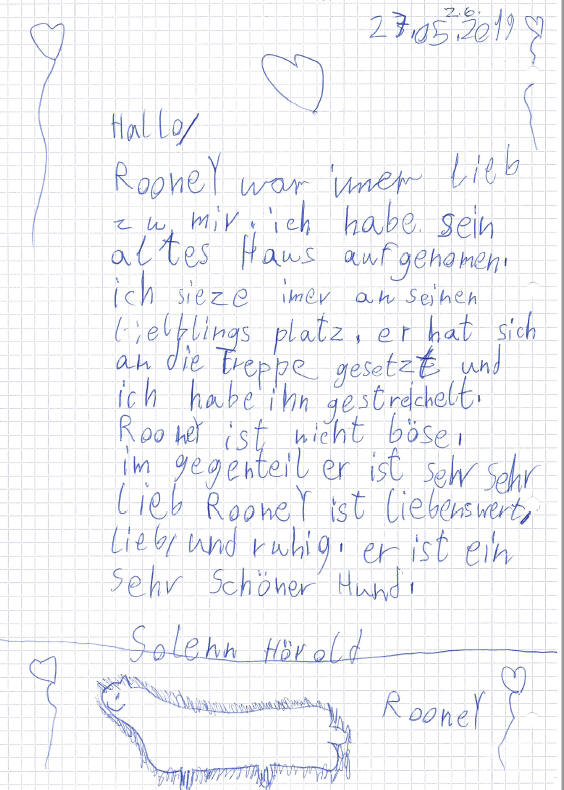 2.6.
27.05.2019
Hallo,
RooneY war imer lieb
zu mir. ich habe sein
altes Haus aufgenomen.
ich sieze imer an seinen
lielblings platz. er hat sich
an die Treppe gesetzt und
ich habe ihn gestreichelt.
RooneY ist nicht böse.
im gegenteil er ist sehr sehr
lieb RooneY ist liebenswert,
lieb, und ruhig. er ist ein
sehr schöner Hund.
Solenn Hörold
RooneY